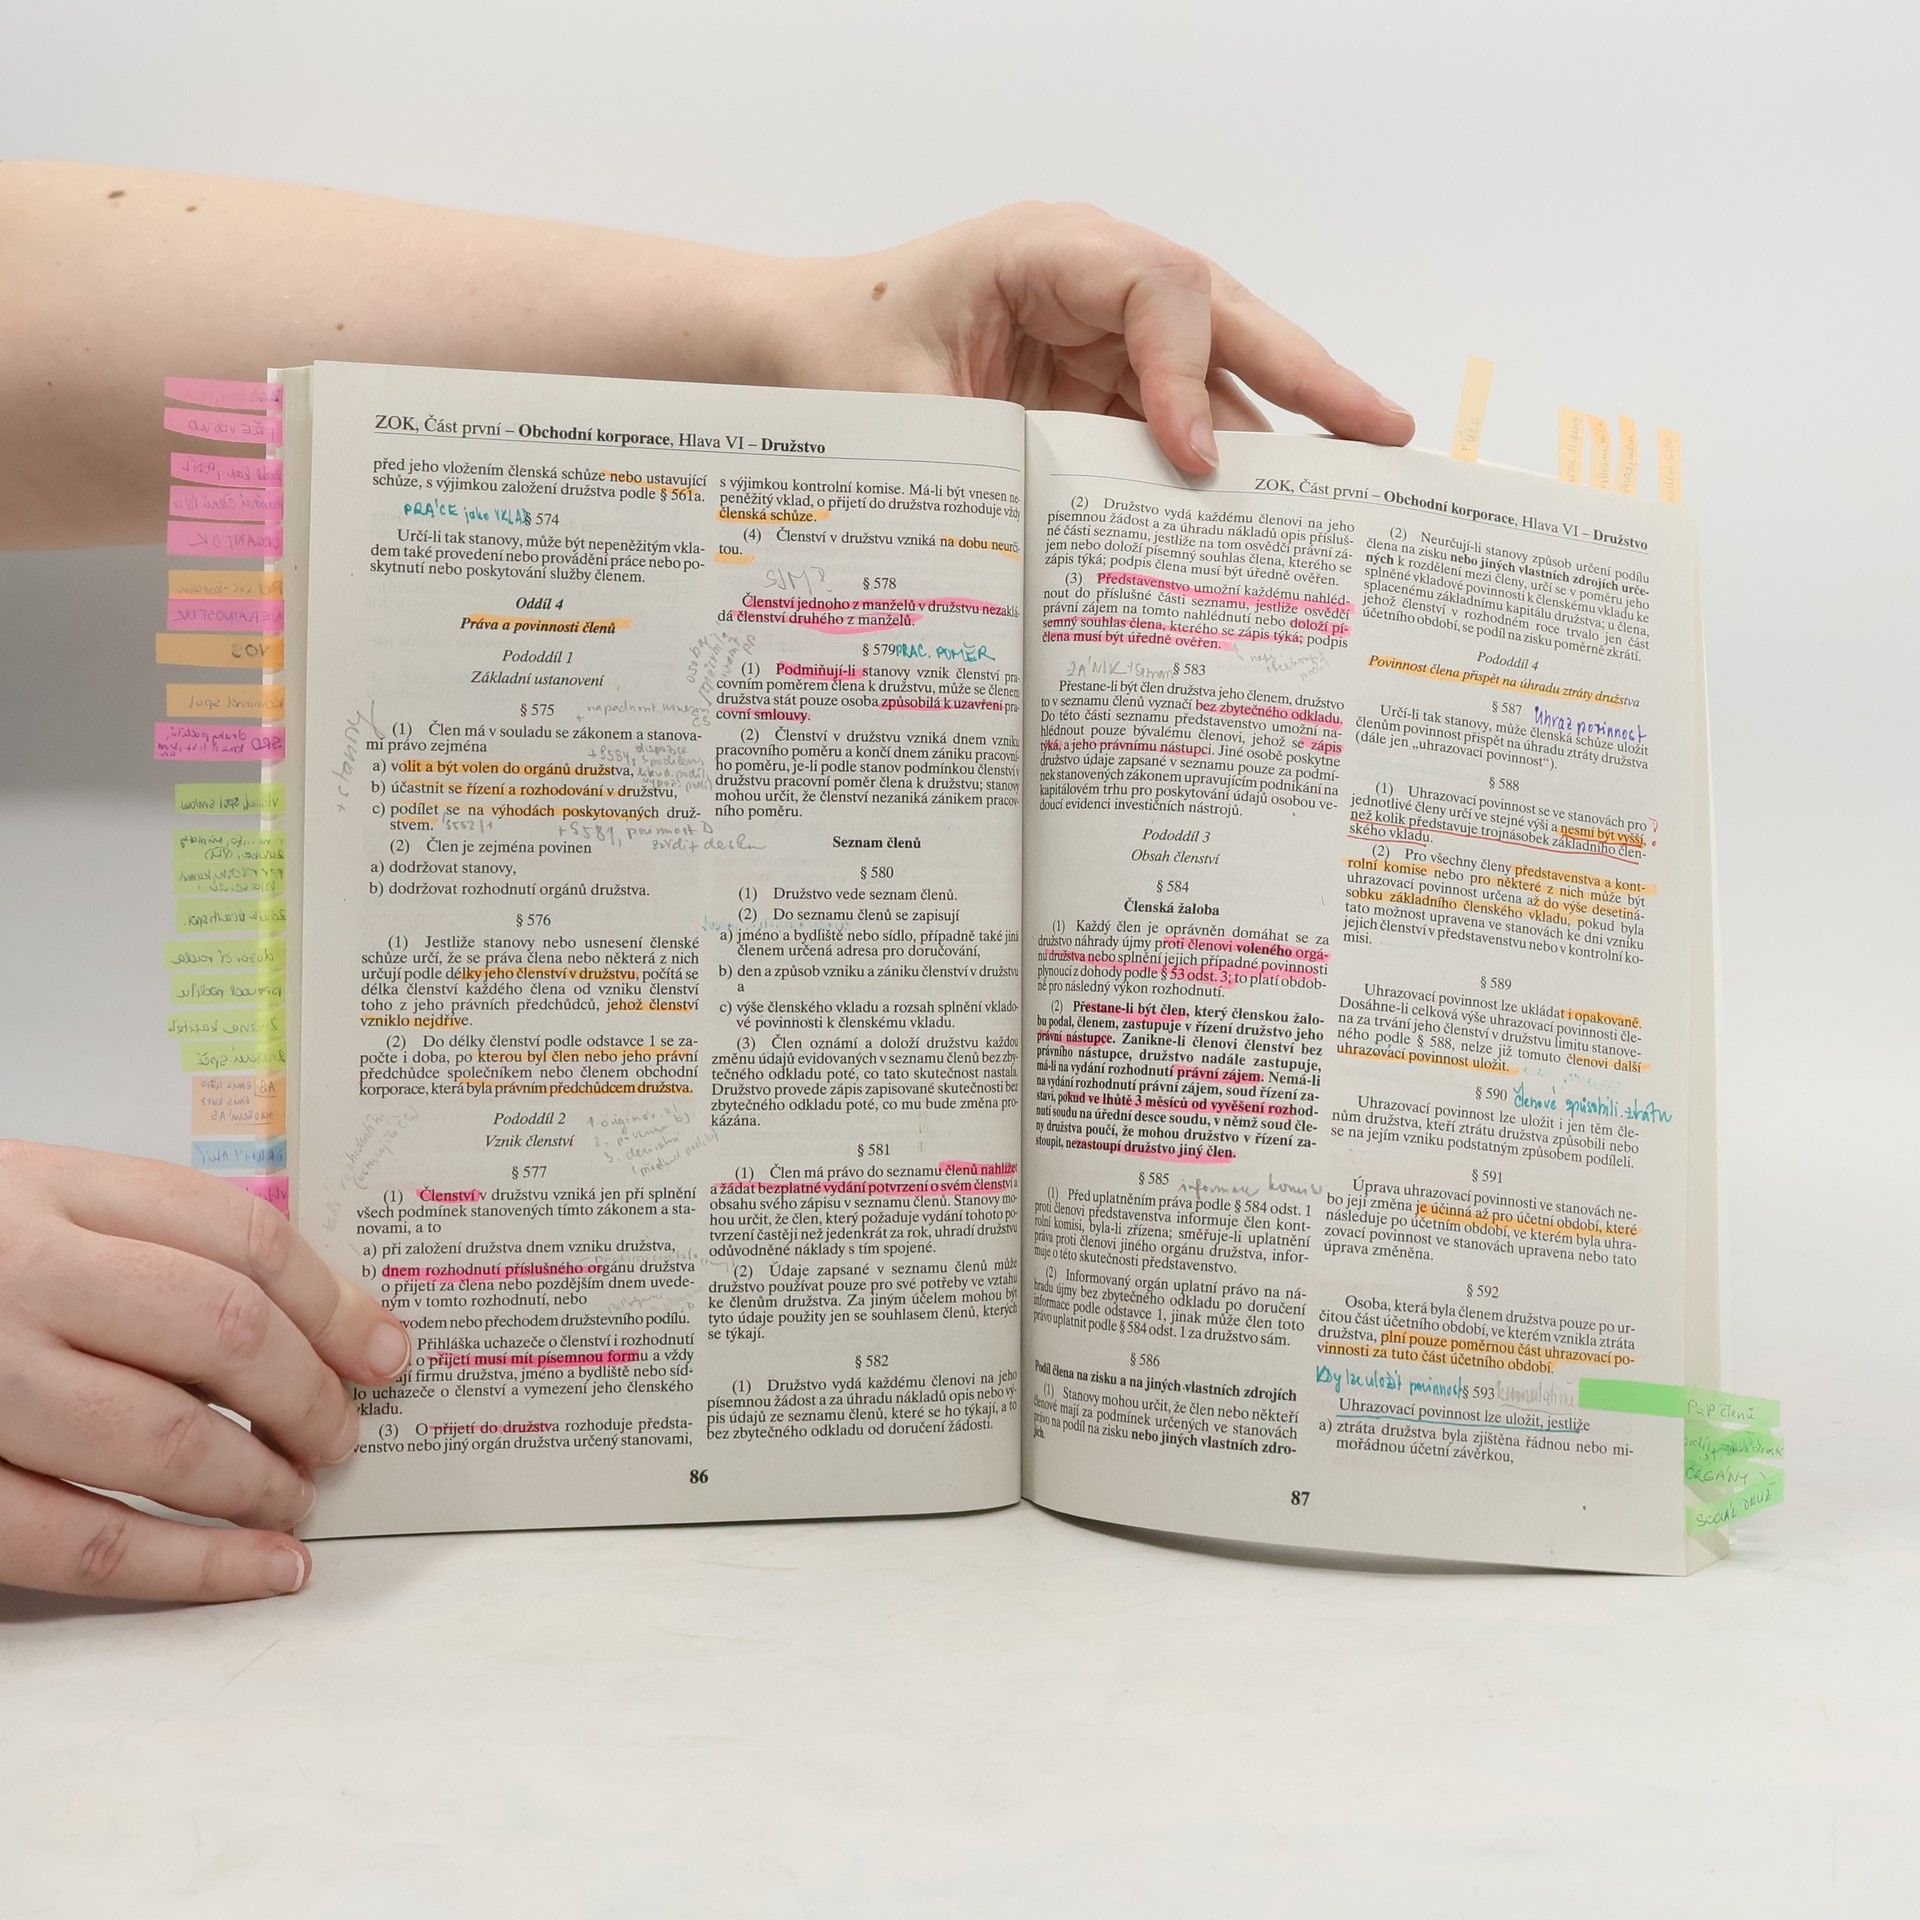 ZOK, Část první – Obchodní korporace, Hlava VI – Družstvo
před jeho vložením členská schůze nebo ustavující
schůze, s výjimkou založení družstva podle § 561a.
PRÁCE jako VKLAD § 574
Určí-li tak stanovy, může být nepeněžitým vkla-
dem také provedení nebo provádění práce nebo po-
skytnutí nebo poskytování služby členem.
Oddíl 4
Práva a povinnosti členů
Pododdíl 1
Základní ustanovení
§ 575
(1) Člen má v souladu se zákonem a stanova-
mi právo zejména
a) volit a být volen do orgánů družstva,
b) účastnit se řízení a rozhodování v družstvu,
c) podílet se na výhodách poskytovaných druž-
stvem.
(2) Člen je zejména povinen
a) dodržovat stanovy,
b) dodržovat rozhodnutí orgánů družstva.
§ 576
(1) Jestliže stanovy nebo usnesení členské
schůze určí, že se práva člena nebo některá z nich
určují podle délky jeho členství v družstvu, počítá se
délka členství každého člena od vzniku členství
toho z jeho právních předchůdců, jehož členství
vzniklo nejdříve.
(2) Do délky členství podle odstavce 1 se za-
počte i doba, po kterou byl člen nebo jeho právní
předchůdce společníkem nebo členem obchodní
korporace, která byla právním předchůdcem družstva.
Pododdíl 2
Vznik členství
§ 577
(1) Členství v družstvu vzniká jen při splnění
všech podmínek stanovených tímto zákonem a sta-
novami, a to
a) při založení družstva dnem vzniku družstva,
b) dnem rozhodnutí příslušného orgánu družstva
o přijetí za člena nebo pozdějším dnem uvede-
ným v tomto rozhodnutí, nebo
vodem nebo přechodem družstevního podílu.
Přihláška uchazeče o členství i rozhodnutí
o přijetí musí mít písemnou formu a vždy
ají firmu družstva, jméno a bydliště nebo síd-
lo uchazeče o členství a vymezení jeho členského
vkladu.
(3) O přijetí do družstva rozhoduje předsta-
venstvo nebo jiný orgán družstva určený stanovami,
s výjimkou kontrolní komise. Má-li být vnesen ne-
peněžitý vklad, o přijetí do družstva rozhoduje vždy
členská schůze.
(4) Členství v družstvu vzniká na dobu neurči-
tou.
§ 578
Členství jednoho z manželů v družstvu nezaklá-
dá členství druhého z manželů.
§ 579 PRAC. POMĚR
(1) Podmiňují-li stanovy vznik členství pra-
covním poměrem člena k družstvu, může se členem
družstva stát pouze osoba způsobilá k uzavření pra-
covní smlouvy.
(2) Členství v družstvu vzniká dnem vzniku
pracovního poměru a končí dnem zániku pracovní-
ho poměru, je-li podle stanov podmínkou členství v
družstvu pracovní poměr člena k družstvu; stanovy
mohou určit, že členství nezaniká zánikem pracov-
ního poměru.
Seznam členů
§ 580
(1) Družstvo vede seznam členů.
(2) Do seznamu členů se zapisují
a) jméno a bydliště nebo sídlo, případně také jiná
členem určená adresa pro doručování,
b) den a způsob vzniku a zániku členství v družstvu
a
c) výše členského vkladu a rozsah splnění vklado-
vé povinnosti k členskému vkladu.
(3) Člen oznámí a doloží družstvu každou
změnu údajů evidovaných v seznamu členů bez zby-
tečného odkladu poté, co tato skutečnost nastala.
Družstvo provede zápis zapisované skutečnosti bez
zbytečného odkladu poté, co mu bude změna pro-
kázána.
§ 581
(1) Člen má právo do seznamu členů nahlížet
a žádat bezplatné vydání potvrzení o svém členství a
obsahu svého zápisu v seznamu členů. Stanovy mo-
hou určit, že člen, který požaduje vydání tohoto po-
tvrzení častěji než jedenkrát za rok, uhradí družstvu
odůvodněné náklady s tím spojené.
(2) Údaje zapsané v seznamu členů může
družstvo používat pouze pro své potřeby ve vztahu
ke členům družstva. Za jiným účelem mohou být
tyto údaje použity jen se souhlasem členů, kterých
se týkají.
§ 582
(1) Družstvo vydá každému členovi na jeho
písemnou žádost a za úhradu nákladů opis nebo vý-
pis údajů ze seznamu členů, které se ho týkají, a to
bez zbytečného odkladu od doručení žádosti.
86
ZOK, Část první – Obchodní korporace, Hlava VI – Družstvo
(2) Družstvo vydá každému členovi na jeho
písemnou žádost a za úhradu nákladů opis přísluš-
né části seznamu, jestliže na tom osvědčí právní zá-
jem nebo doloží písemný souhlas člena, kterého se
zápis týká; podpis člena musí být úředně ověřen.
(3) Představenstvo umožní každému nahléd-
nout do příslušné části seznamu, jestliže osvědčí
právní zájem na tomto nahlédnutí nebo doloží pí-
semný souhlas člena, kterého se zápis týká; podpis
člena musí být úředně ověřen.
§ 583
Přestane-li být člen družstva jeho členem, družstvo
to v seznamu členů vyznačí bez zbytečného odkladu.
Do této části seznamu představenstvo umožní na-
hlédnout pouze bývalému členovi, jehož se zápis
týká, a jeho právnímu nástupci. Jiné osobě poskytne
družstvo údaje zapsané v seznamu pouze za podmí-
nek stanovených zákonem upravujícím podnikání na
kapitálovém trhu pro poskytování údajů osobou ve-
doucí evidenci investičních nástrojů.
Pododdíl 3
Obsah členství
§ 584
Členská žaloba
(1) Každý člen je oprávněn domáhat se za
družstvo náhrady újmy proti členovi voleného orgá-
nu družstva nebo splnění jejich případné povinnosti
plynoucí z dohody podle § 53 odst. 3; to platí obdob-
ně pro následný výkon rozhodnutí.
(2) Přestane-li být člen, který členskou žalo-
bu podal, členem, zastupuje v řízení družstvo jeho
právní nástupce. Zanikne-li členovi členství bez
právního nástupce, družstvo nadále zastupuje,
má-li na vydání rozhodnutí právní zájem. Nemá-li
na vydání rozhodnutí právní zájem, soud řízení za-
staví, pokud ve lhůtě 3 měsíců od vyvěšení rozhod-
nutí soudu na úřední desce soudu, v němž soud čle-
ny družstva poučí, že mohou družstvo v řízení za-
stoupit, nezastoupí družstvo jiný člen.
§ 585 informace komisi
(1) Před uplatněním práva podle § 584 odst. 1
proti členovi představenstva informuje člen kont-
rolní komisi, byla-li zřízena; směřuje-li uplatnění
práva proti členovi jiného orgánu družstva, infor-
muje o této skutečnosti představenstvo.
(2) Informovaný orgán uplatní právo na ná-
hradu újmy bez zbytečného odkladu po doručení
informace podle odstavce 1, jinak může člen toto
právo uplatnit podle § 584 odst. 1 za družstvo sám.
§ 586
Podíl člena na zisku a na jiných vlastních zdrojích
(1) Stanovy mohou určit, že člen nebo někteří
členové mají za podmínek určených ve stanovách
právo na podíl na zisku nebo jiných vlastních zdro-
jích.
(2) Neurčují-li stanovy způsob určení podílu
člena na zisku nebo jiných vlastních zdrojích urče-
ných k rozdělení mezi členy, určí se v poměru jeho
splněné vkladové povinnosti k členskému vkladu ke
splacenému základnímu kapitálu družstva; u člena,
jehož členství v rozhodném roce trvalo jen část
účetního období, se podíl na zisku poměrně zkrátí.
Pododdíl 4
Povinnost člena přispět na úhradu ztráty družstva
§ 587 Uhraz povinnost
Určí-li tak stanovy, může členská schůze uložit
členům povinnost přispět na úhradu ztráty družstva
(dále jen „uhrazovací povinnost“).
§ 588
(1) Uhrazovací povinnost se ve stanovách pro
jednotlivé členy určí ve stejné výši a nesmí být vyšší,
než kolik představuje trojnásobek základního člen-
ského vkladu.
(2) Pro všechny členy představenstva a kont-
rolní komise nebo pro některé z nich může být
uhrazovací povinnost určena až do výše desetiná-
sobku základního členského vkladu, pokud byla
tato možnost upravena ve stanovách ke dni vzniku
jejich členství v představenstvu nebo v kontrolní ko-
misi.
§ 589
Uhrazovací povinnost lze ukládat i opakovaně.
Dosáhne-li celková výše uhrazovací povinnosti čle-
na za trvání jeho členství v družstvu limitu stanove-
ného podle § 588, nelze již tomuto členovi další
uhrazovací povinnost uložit.
§ 590 členové způsobili ztrátu
Uhrazovací povinnost lze uložit i jen těm čle-
nům družstva, kteří ztrátu družstva způsobili nebo
se na jejím vzniku podstatným způsobem podíleli.
§ 591
Úprava uhrazovací povinnosti ve stanovách ne-
bo její změna je účinná až pro účetní období, které
následuje po účetním období, ve kterém byla uhra-
zovací povinnost ve stanovách upravena nebo tato
úprava změněna.
§ 592
Osoba, která byla členem družstva pouze po ur-
čitou část účetního období, ve kterém vznikla ztráta
družstva, plní pouze poměrnou část uhrazovací po-
vinnosti za tuto část účetního období.
Kdy lze uložit povinnost § 593 kumulativně
Uhrazovací povinnost lze uložit, jestliže
a) ztráta družstva byla zjištěna řádnou nebo mi-
mořádnou účetní závěrkou,
87
PaP členů
ORGÁNY
SOCIÁL DRUŽ